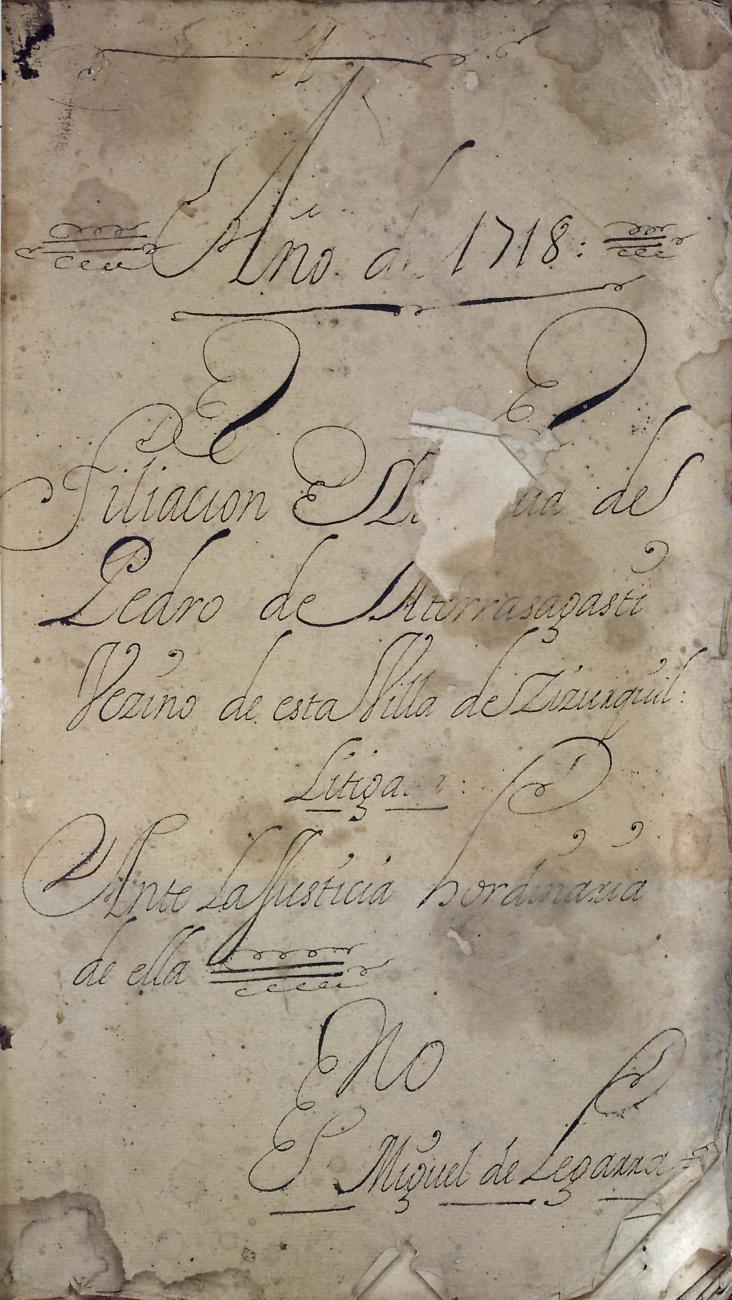 Año de 1718:
Filiacion de
Pedro de Aturrasagasti
Vezino de esta Villa de Zizurquil:
Litiga
Ante La Justicia hordinaria
de ella
Eno
Miguel de Legarra